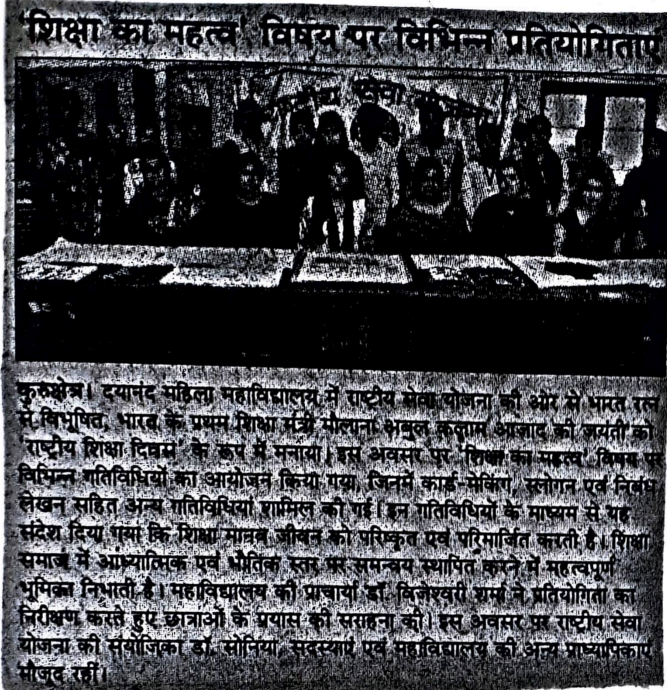 'शिक्षा का महत्व' विषय पर विभिन्न प्रतियोगिताएं
सेवा योजना
कुरुक्षेत्र। दयानंद महिला महाविद्यालय में राष्ट्रीय सेवा योजना की ओर से भारत रत्न
से विभूषित, भारत के प्रथम शिक्षा मंत्री मौलाना अबुल कलाम आजाद की जयंती को
'राष्ट्रीय शिक्षा दिवस' के रूप में मनाया। इस अवसर पर 'शिक्षा का महत्व' विषय पर
विभिन्न गतिविधियों का आयोजन किया गया, जिनमें कार्ड मेकिंग, स्लोगन एवं निबंध
लेखन सहित अन्य गतिविधियां शामिल की गई। इन गतिविधियों के माध्यम से यह
संदेश दिया गया कि शिक्षा मानव जीवन को परिष्कृत एवं परिमार्जित करती है। शिक्षा
समाज में आध्यात्मिक एवं भौतिक स्तर पर समन्वय स्थापित करने में महत्वपूर्ण
भूमिका निभाती है। महाविद्यालय की प्राचार्या डॉ. विजेश्वरी शर्मा ने प्रतियोगिता का
निरीक्षण करते हुए छात्राओं के प्रयास की सराहना की। इस अवसर पर राष्ट्रीय सेवा
योजना की संयोजिका डॉ. सोनिया, सदस्याएं एवं महाविद्यालय की अन्य प्राध्यापिकाएं
मौजूद रहीं।